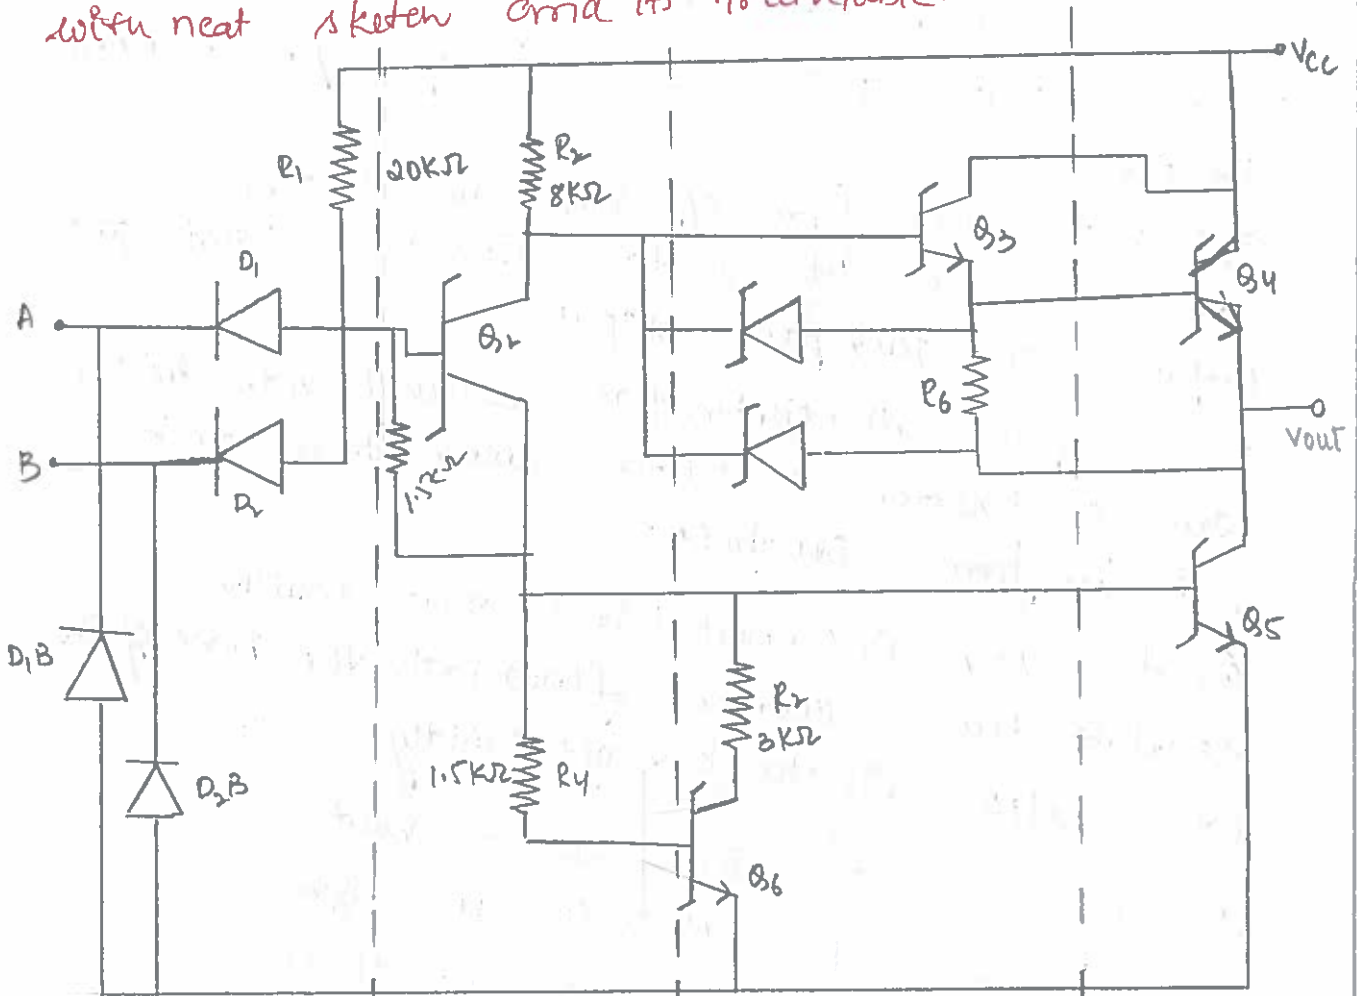 with neat sketch and its
Vcc
R1
20KΩ
R2
8KΩ
D1
Q3
A
Q2
Q4
R6
Vout
B
D2
1.5KΩ
Q5
D1B
R2
3KΩ
1.5KΩ
R4
D2B
Q6